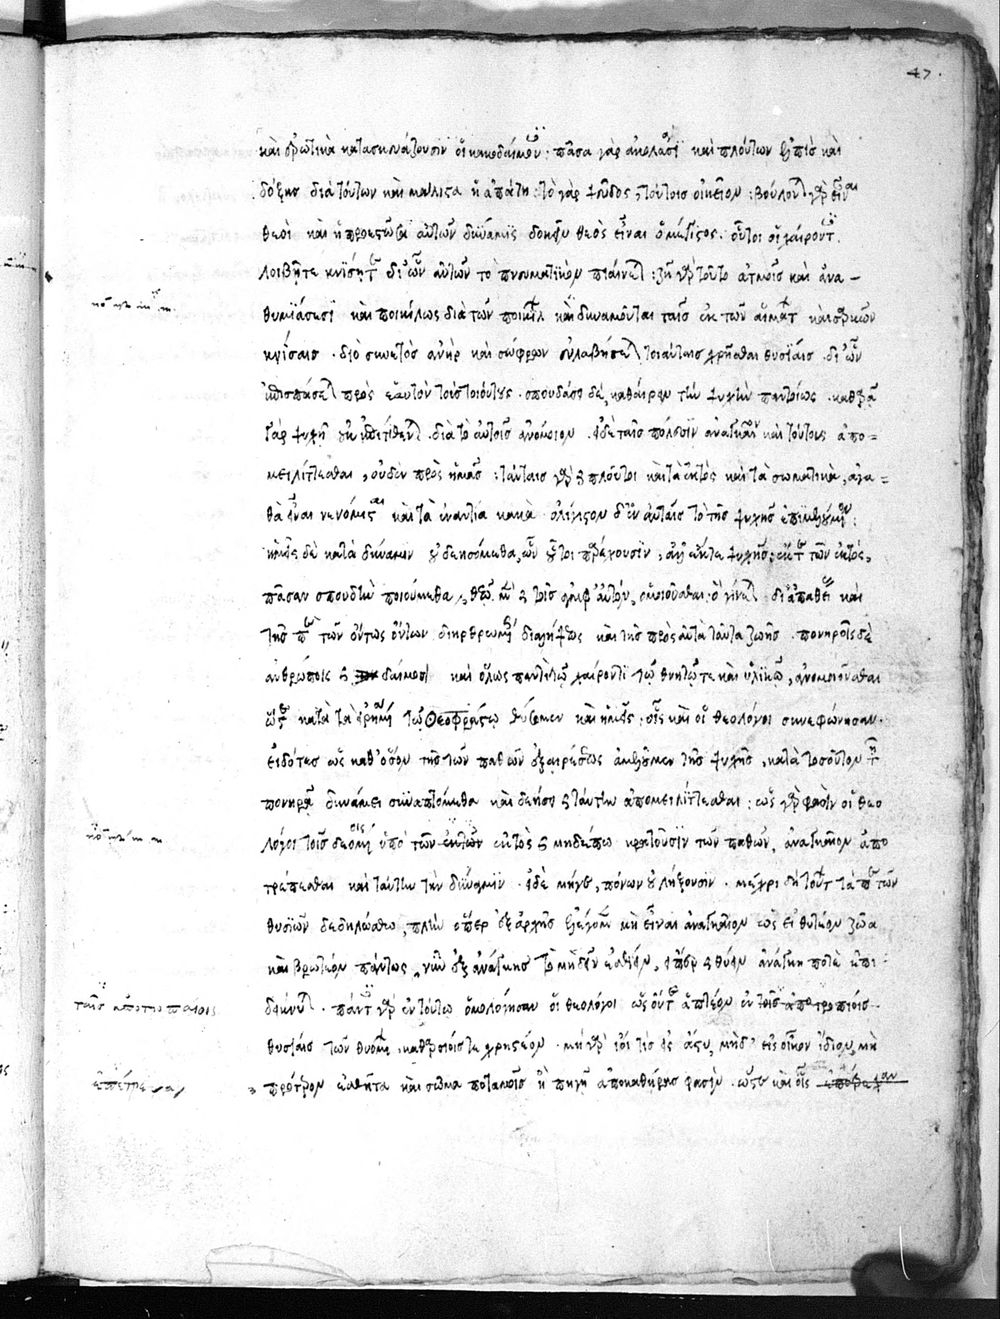 καὶ ἐρωτικὰ κατασκευάζουσιν οἱ κακοδαίμον· πᾶσα γὰρ ἀκολασί καὶ πλούτων ἐλπὶς καὶ
δόξης διὰ τούτων καὶ μάλιστα ἡ ἀπάτη· τὸ γὰρ ψεῦδος τούτοις οἰκεῖον· βούλονται γὰρ εἶναι
θεοὶ καὶ ἡ προεστῶσα αὐτῶν δύναμις δοκεῖν θεὸς εἶναι ὁ μέγιστος. οὗτοι οἱ χαίροντ.
λοιβῆτε κνίσητε δι' ὧν αὐτῶν τὸ πνευματικὸν πιαίνεται· ζῆ γὰρ τοῦτο ἀτμοῖς καὶ ἀνα-
θυμιάσεσι καὶ ποικίλως διὰ τῶν ποικίλ καὶ δυναμοῦται ταῖς ἐκ τῶν αἱμάτ καὶ σαρκῶν
κνίσαις. διὸ συνετὸς ἀνὴρ καὶ σώφρων εὐλαβήσεται τοιαύταις χρῆσθαι θυσίαις. δι' ὧν
ἐπισπάσεται πρὸς ἑαυτὸν τοὺς τοιούτους. σπουδάσει δὲ καθαίρειν τὴν ψυχὴν παντοίως. καθαρᾶ
γὰρ ψυχῆ οὐκ ἐπιτίθενται. διὰ τὸ αὐτοῖς ἀνόμοιον. εἰ δὲ ταῖς πόλεσιν ἀναγκαῖον καὶ τούτους ἀπο=
μειλίττεσθαι, οὐδὲν πρὸς ἡμᾶς· ταύταις γὰρ καὶ πλοῦτοι καὶ τὰ ἐκτὸς καὶ τὰ σωματικὰ, ἀγα=
θὰ εἶναι νενόμισται καὶ τὰ ἐναντία κακὰ. ὀλίγιστον δ' ἐν αὐταῖς τὸ τῆς ψυχῆς ἐπιμελούμεν·
ἡμεῖς δὲ κατὰ δύναμιν οὐ δεησόμεθα, ὧν οὗτοι παρέχουσιν, ἀλλ' ἔκ τε ψυχῆς· ἔκ τε τῶν ἐκτὸς,
πᾶσαν σπουδὴν ποιούμεθα, θεῷ μὲν καὶ τοῖς ἀμφ' αὐτὸν, ὁμοιοῦσθαι. ὃ γίνεται δι' ἀπαθείας καὶ
τῆς περὶ τῶν ὄντως ὄντων διηρθρωμένης διαλήψεως καὶ τῆς πρὸς αὐτὰ ταῦτα ζωῆς. πονηροῖς δὲ
ἀνθρώποις καὶ δαίμοσι καὶ ὅλως παντὶ τῷ χαίροντι τῷ θνητῷ τε καὶ ὑλικῷ, ἀνομοιοῦσθαι
ὥστε κατὰ τὰ εἰρημέν τῷ Θεοφράστῳ θύσομεν καὶ ἡμεῖς· οἷς καὶ οἱ θεολόγοι συνεφώνησαν.
εἰδότες ὡς καθ' ὅσον τῆς τῶν παθῶν ἐξαιρέσεως ἀμελοῦμεν τῆς ψυχῆς, κατὰ τοσοῦτον τῇ
πονηρᾷ δυνάμει συναπτόμεθα καὶ δεήσει καὶ ταύτην ἀπομειλίττεσθαι· ὡς γὰρ φασὶν οἱ θεο
λόγοι τοῖς δεομένοις ὑπὸ τῶν ἐκτὸς καὶ μηδέπω κρατοῦσιν τῶν παθῶν, ἀναγκαῖον ἀπο
τρέπεσθαι καὶ ταύτην τὴν δύναμιν. εἰ δὲ μήγε, πόνων οὐ λήξουσιν. μέχρι δὴ τούτ τὰ περὶ τῶν
θυσιῶν δεδηλώσθω, πλὴν ὅπερ ἐξ ἀρχῆς ἐλέγομεν μὴ εἶναι ἀναγκαῖον ὡς εἰ θυτέον ζῶα
καὶ βρωτέον πάντως, νῦν ἐξ ἀνάγκης τὸ μηδὲν ἐσθίειν, εἴπερ καὶ θύειν ἀνάγκη ποτὲ ἐπι
δείκνυται. πάντ γὰρ ἐν τούτῳ ὁμολόγησαν οἱ θεολόγοι ὡς οὔτε ἁπτέον ἐν τοῖς ἀποτροπαίοις
θυσίαις τῶν θυομέν, καθαρσίοις τε χρηστέον. μὴ γὰρ ἴοι τίς ἐς ἄστυ, μήδ' εἰς οἶκον ἴδιον, μὴ
πρότερον ἐσθῆτα καὶ σῶμα ποταμοῖς ἢ πηγῇ ἀποκαθήρας φασὶν. ὥστε καὶ οἷς
ταῖς ἀποτροπαίοις
ἐπέτρεψαν
47.